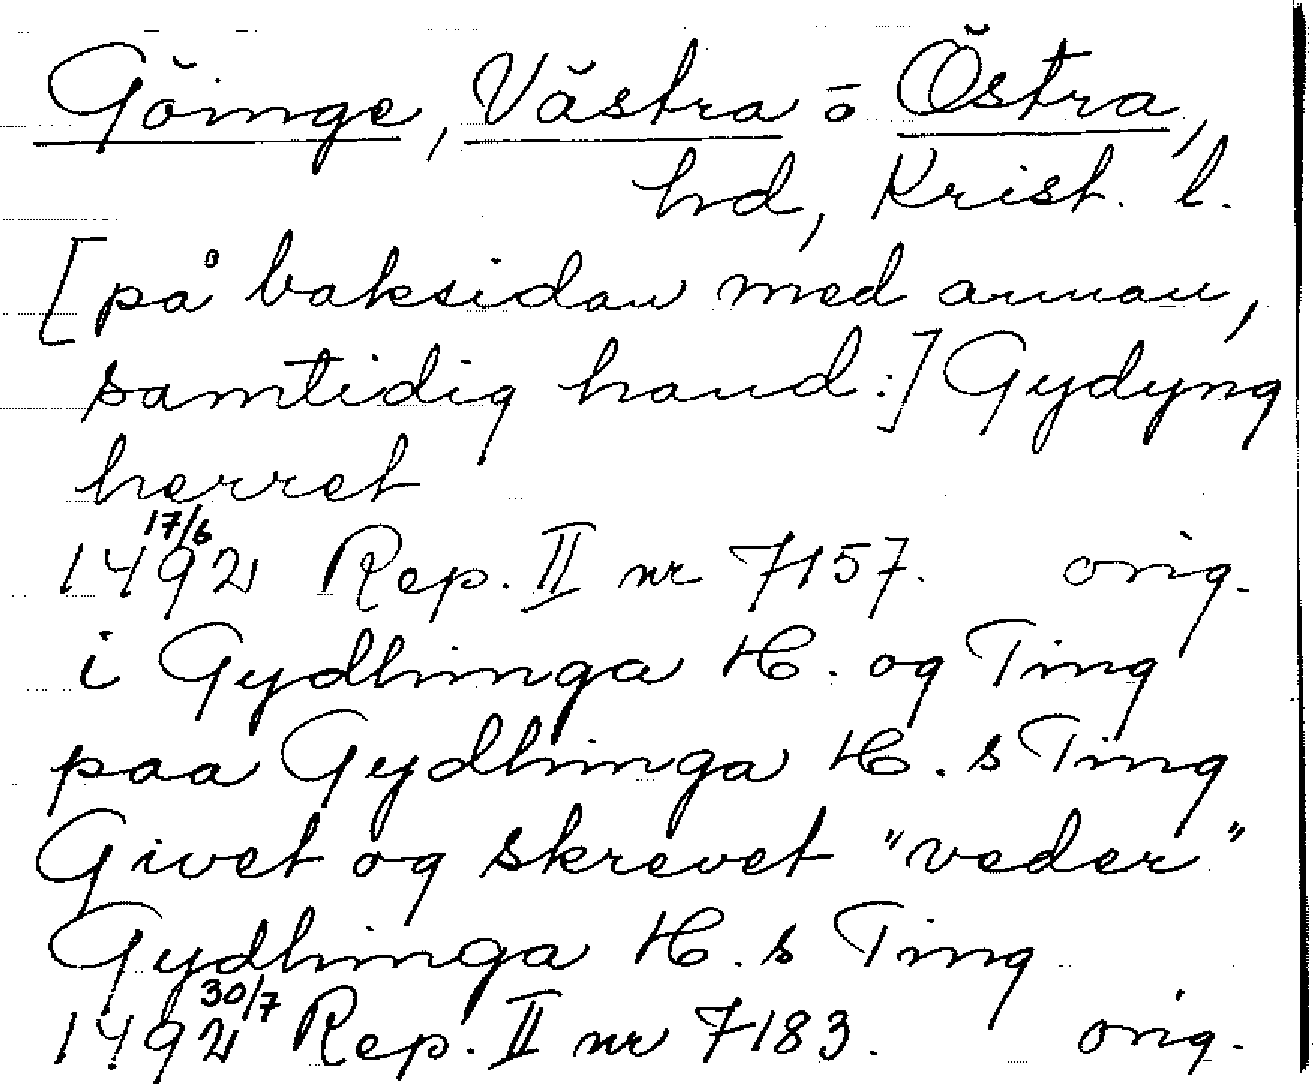 Göinge, Västra o Östra,
hd, Krist. l.
[på baksidan med annan,
samtidig hand:] Gydyng
herret
1492 17/6 Rep. II nr 7157. orig.
i Gydhinga H. og Ting
paa Gydhinga H. s Ting
Givet og skrevet "veder"
Gydhinga H. s Ting
1492 30/7 Rep. II nr 7183. orig.